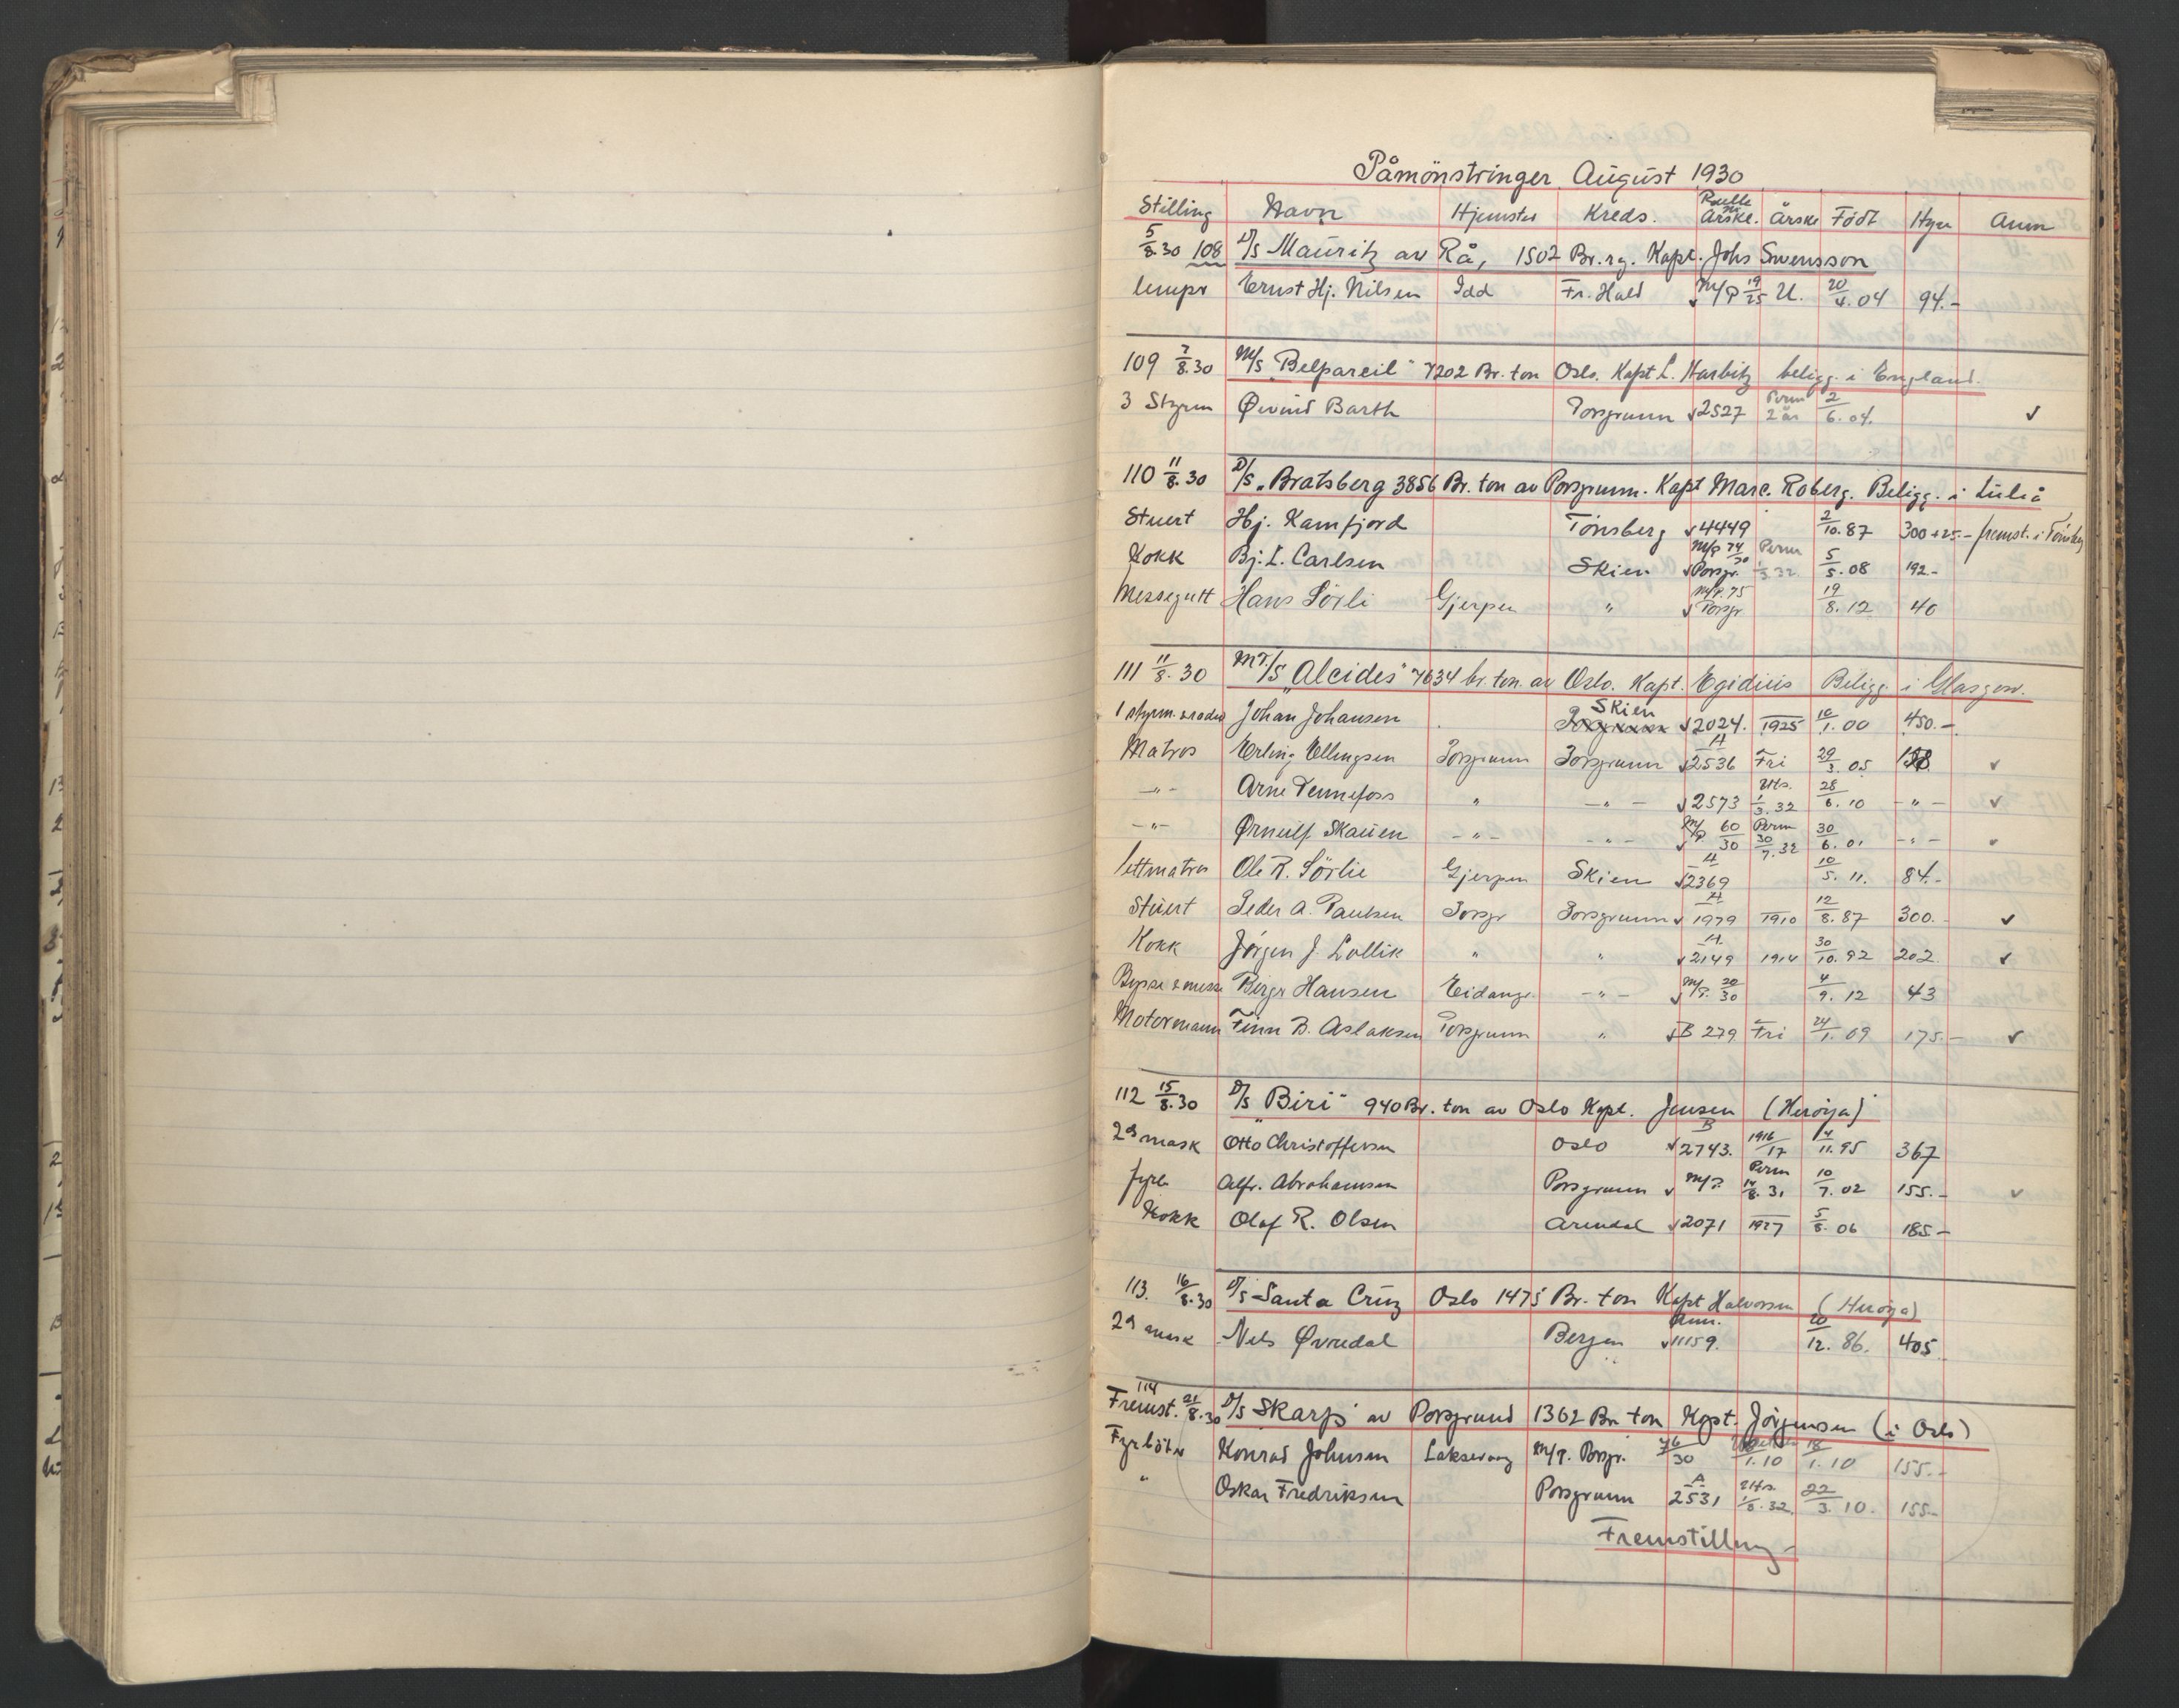 Påmönstringer August 1930
Stilling Navn Hjemsted Kreds. Rulle Nr Årskl. Årskl Födt Hyre Anm
5/8.30 108 D/S Mauritz av Rå, 1502 Br.rg. Kapt. Johs Svensson
lempr Ernst Hj. Nilsen Idd Fr.Hald M/P 19/25 U. 20/4.04 94.-
109 7/8.30 M/S "Belpareil" 7202 Br. ton Oslo. Kapt L. Harbitz beligg. i England.
3 Styrm Øivind Barth Porsgrunn 2527 Perm 2 år 2/6.04.
110 11/8.30 D/S "Bratsberg 3856 Br. ton av Porsgrunn. Kapt Marc. Roberg. Beligg. i Luleå
Stuert Hj. Kamfjord Tönsberg 4449 2/10.87 300+25.- fremst. i Tönsbg
Kokk Bj. L. Carlsen Skien M/P 74/30 Porsgr. Perm 1/3.32 5/5.08 192-
Messegutt Hans Sörli Gjerpen " M/P. 75 Porsgr 19/8.12 40
111 11/8.30 MT/S "Alcides" 7634 br. ton. av Oslo. Kapt. Egidius Beligg. i Glasgow.
1 styrm. & radio Johan Johansen Porsgrunn Skien 2024. 1925 10/1.00 450.-
Matros Erling Ellingsen Porsgrunn Porsgrunn A 2536 Fri 29/3.05 138
-"- Arne Tennefoss " -"- 2573 Uts. 1/3.32 28/6.10 -"-
-"- Ørnulf Skauen -"- -"- M/P 60/30 Perm 30/7.32 30/6.01 -"-
lettmatros Ole R. Sörlie Gjerpen Skien A 2369 10/5.11. 84.-
Stuert Peder A. Paulsen Porsgr Porsgrunn A 1979 1910 12/8.87 300.-
Kokk Jörgen J. Lollik " " A 2149 1914 30/10.92 202.
Bysse & messe Birger Hansen Eidang. -"- M/P. 20/30 4/9.12 43
Motormann Finn B. Aslaksen Porsgrunn " B 279 Fri 24/1.09 175.-
112 15/8.30 D/S "Biri" 940 Br. ton av Oslo Kapt. Jensen (Heröya)
2d mask Otto Christoffersen Oslo B 2743. 1916/17 4/11.95 367
fyrb Alfr. Abrahamsen Porsgrunn M/P. Perm 14/8.31 10/7.02 155.-
Kokk Olaf R. Olsen Arendal 2071 1927 5/8.06 185-
113. 16/8.30 D/S Santa Cruz Oslo 1475 Br. ton Kapt Halvorsen (Heröya)
2d mask Nils Øvredal Bergen Ann. 11159. 20/12.86. 405
114 Fremst. 21/8.30 D/S "Skarp" av Porsgrund 1362 Br. ton Kapt. Jörgensen (i Oslo)
Fyrböter Konrad Johnsen Laksevaag M/P. Porsgr. 76/30 1.10 18/1.10 155.-
" Oskar Fredriksen Porsgrunn A 2531 Uts. 1/8.32. 22/3.10. 155-
Fremstilling